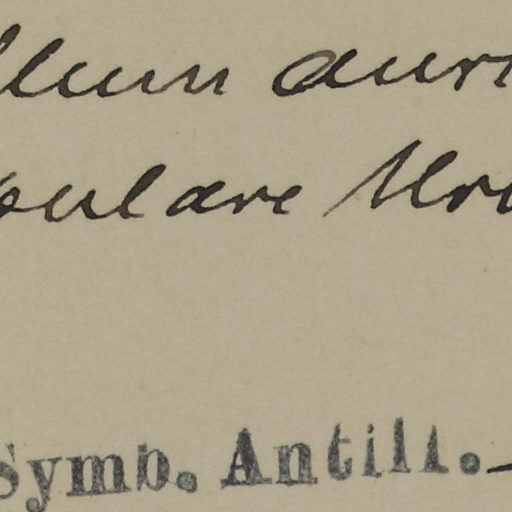 llum auri
pulare Urb
Symb. Antill.-